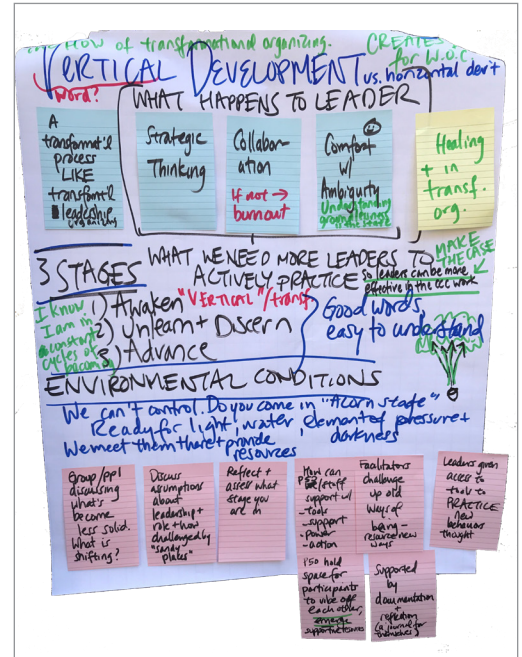 HOW of transformational organizing.
CREATES
for W.O.C.
VERTICAL DEVELOPMENT vs. horizontal dev't
word?
WHAT HAPPENS TO LEADER
A
transformat'l
process
LIKE
transfomt'l
leadership
organizing
Strategic
Thinking
Collabor-
ation
If not →
burnout
Comfort
w/
Ambiguity
Understanding
groundlessness
is the state
Healing
+ in
transf.
org.
3 STAGES
WHAT WE NEED MORE LEADERS TO
ACTIVELY PRACTICE
MAKE
THE CASE
So leaders can be more
effective in the work
"VERTICAL"/transf.
I know
I am in
constant
cycles of
becoming
1) Awaken
2) Unlearn + Discern
3) Advance
Good words,
easy to understand
ENVIRONMENTAL CONDITIONS
We can't control. Do you come in "Acorn state"
Ready for light, water, element of pressure +
darkness
We meet them there + provide
resources
Group/ppl
discussing
what's
become
less solid.
What is
shifting?
Discuss
assumptions
about
leadership +
role + how
challenged by
"sandy
plates"
Reflect +
assess what
stage you
are in
How can
staff
support w/
- tools
- support
- power
- action
Facilitators
challenge
up old
ways of
being -
resource new
ways
Leaders given
access to
tools to
PRACTICE
new
behaviors
thought
hold
space for
participants
to vibe off
each other,
emerge
supportive resources
Supported
by
documentation
+
reflection
(a journal for
themselves)